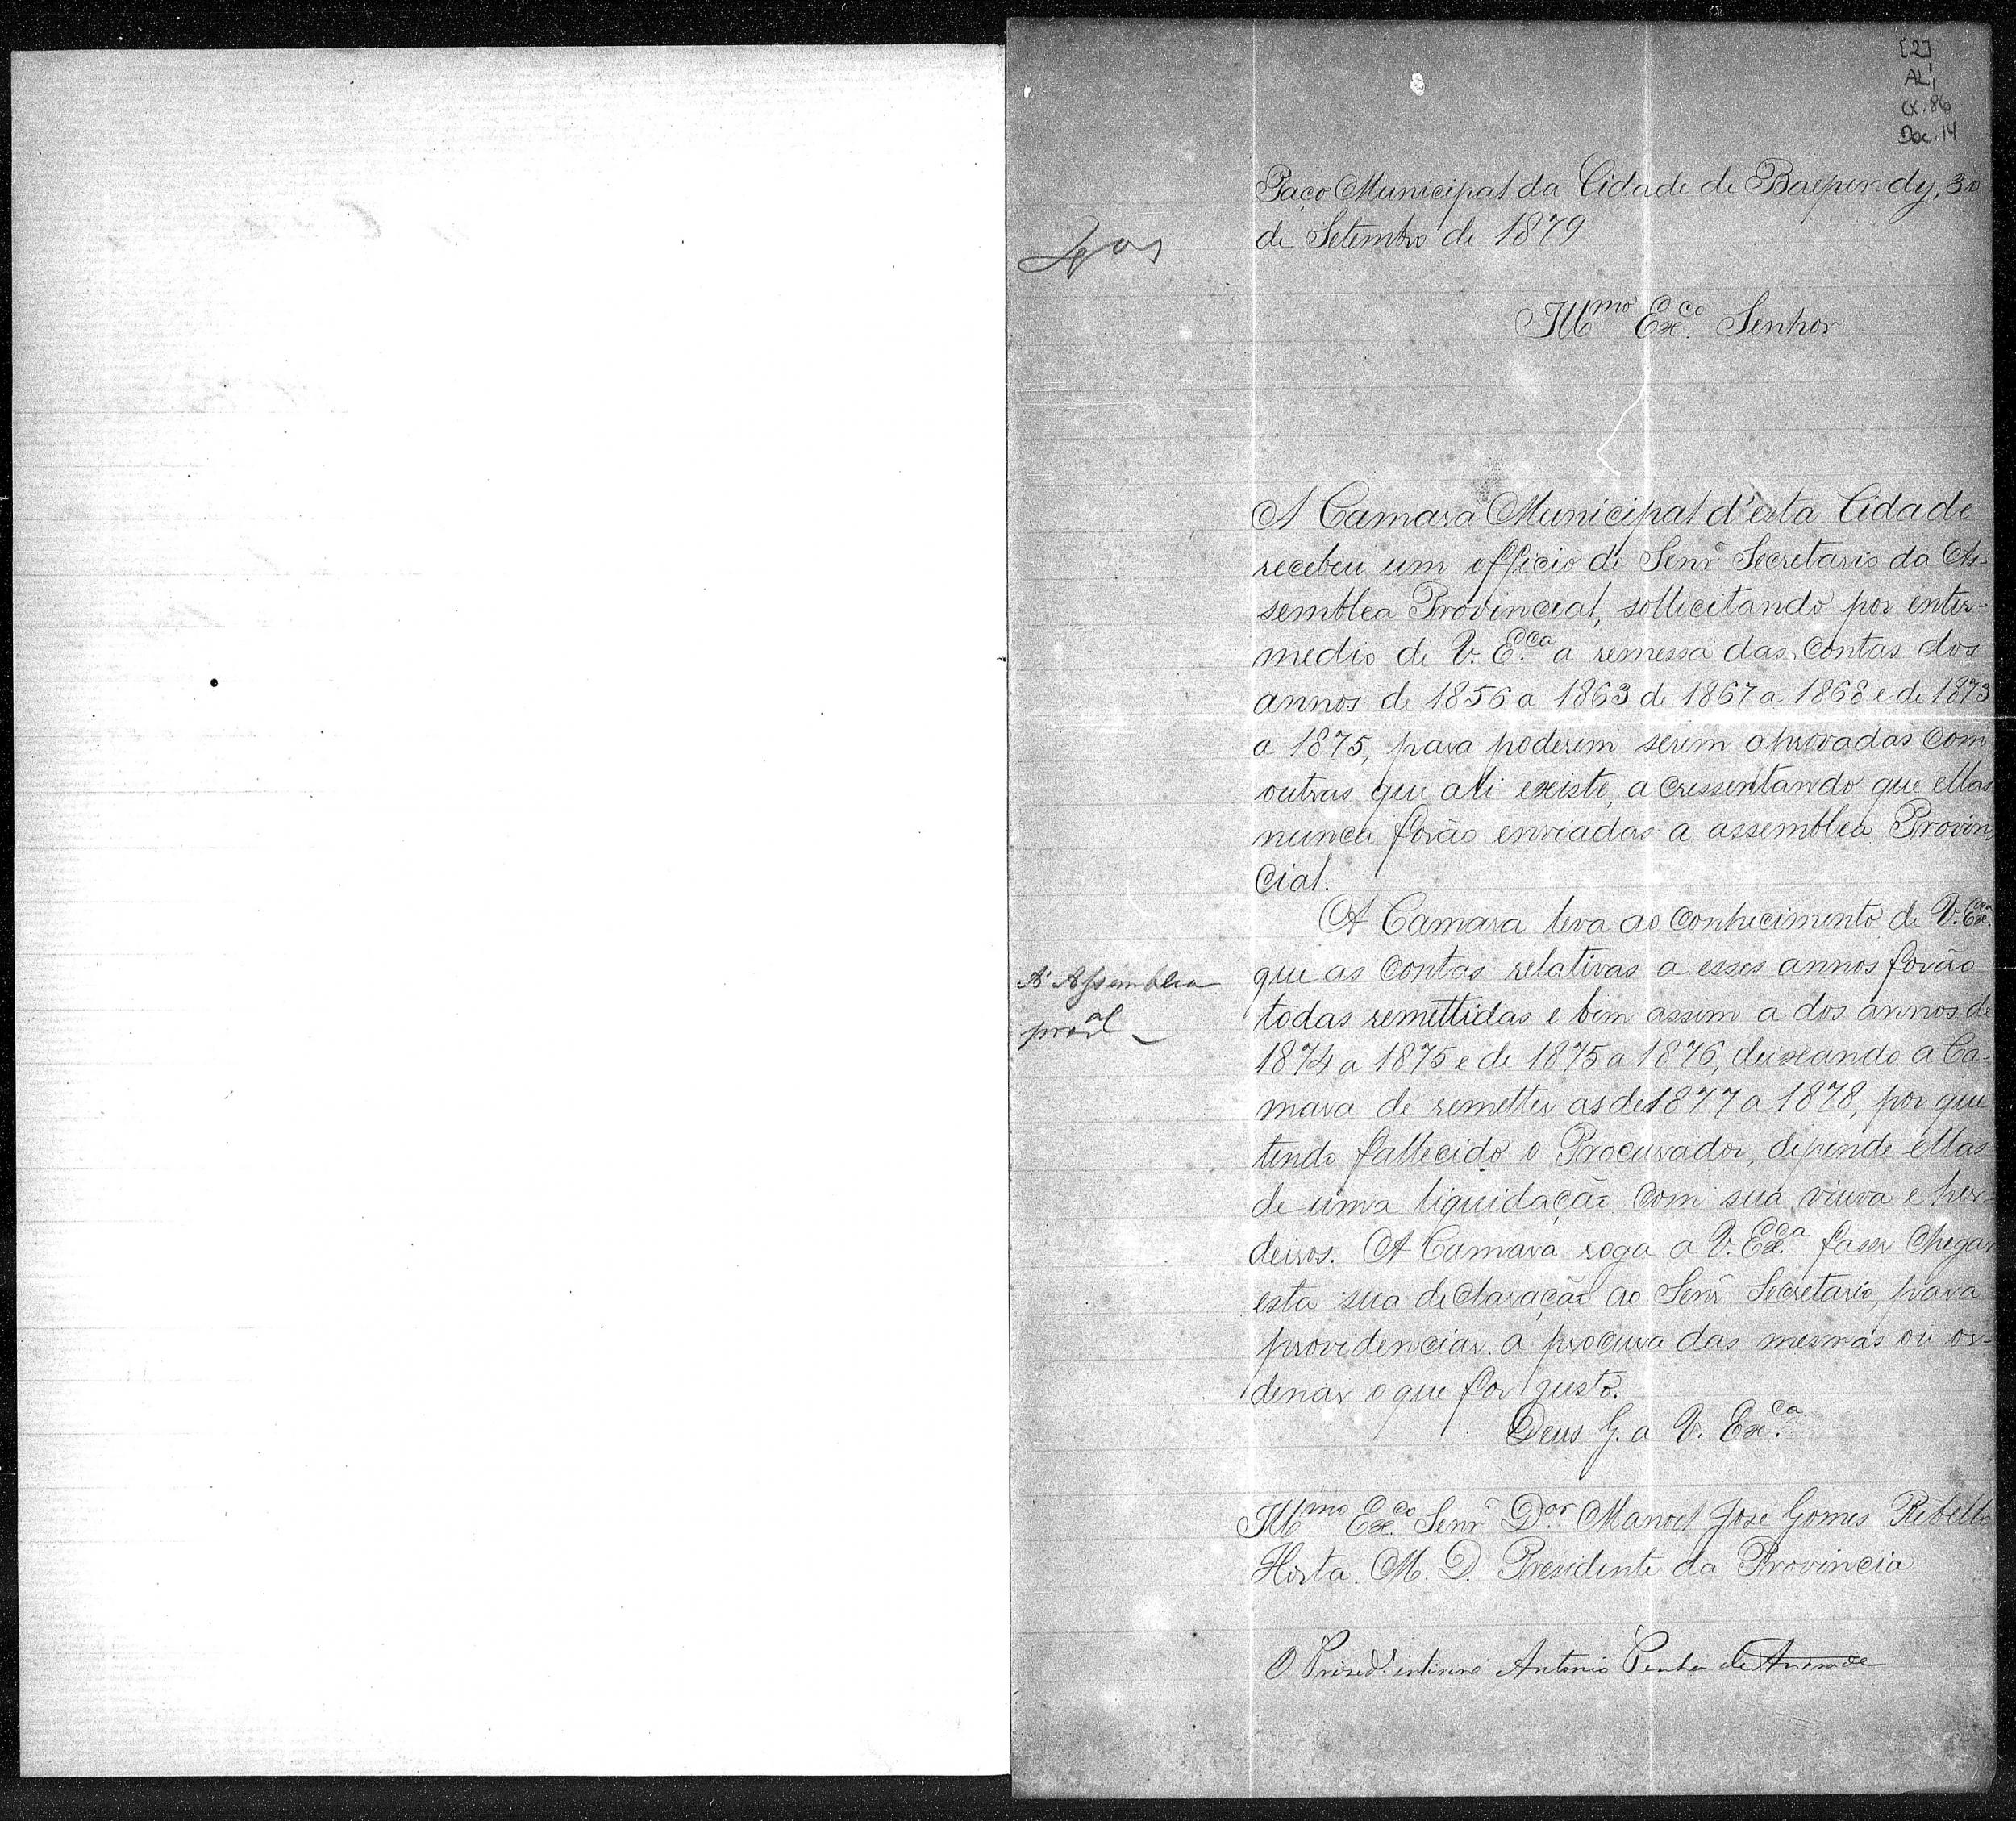 [2]
AL1
cx. 86
Doc. 14
Paço Municipal da Cidade de Baependy, 30
de Setembro de 1879
Illmo Exco. Senhor
A Camara Municipal d'esta Cidade
recebeu um officio do Senr Secretario da As-
semblea Provincial, sollicitando por enter-
medio de V. Eca. a remessa das contas dos
annos de 1856 a 1863 de 1867 a 1868 e de 1873
a 1875, para poderem serem aprovadas com
outras que ali existe, a cressentando que ellas
nunca forão enviadas a assemblea Provin
cial.
A Camara leva ao conhecimento de V. Exca.
que as contas relativas a esses annos forão
A' Assemblea
proal
todas remettidas e bem assim a dos annos de
1874 a 1875 e de 1875 a 1876, deixando a Ca-
mara de remetter as de 1877 a 1878, por que
tendo fallecido o Procurador, depende ellas
de uma liquidação com sua viuva e her-
deiros. A Camara roga a V. Exca. faser chegar
esta sua declaração ao Senr Secretario, para
providenciar a procura das mesmas ou or-
denar o que for gusto.
Deus G. a V. Exca.
Illmo Exco. Senr Dor. Manoel Jose Gomes Rebello
Horta. M. D. Presidente da Provincia
O Presid.e interino Antonio Penha de Andrade